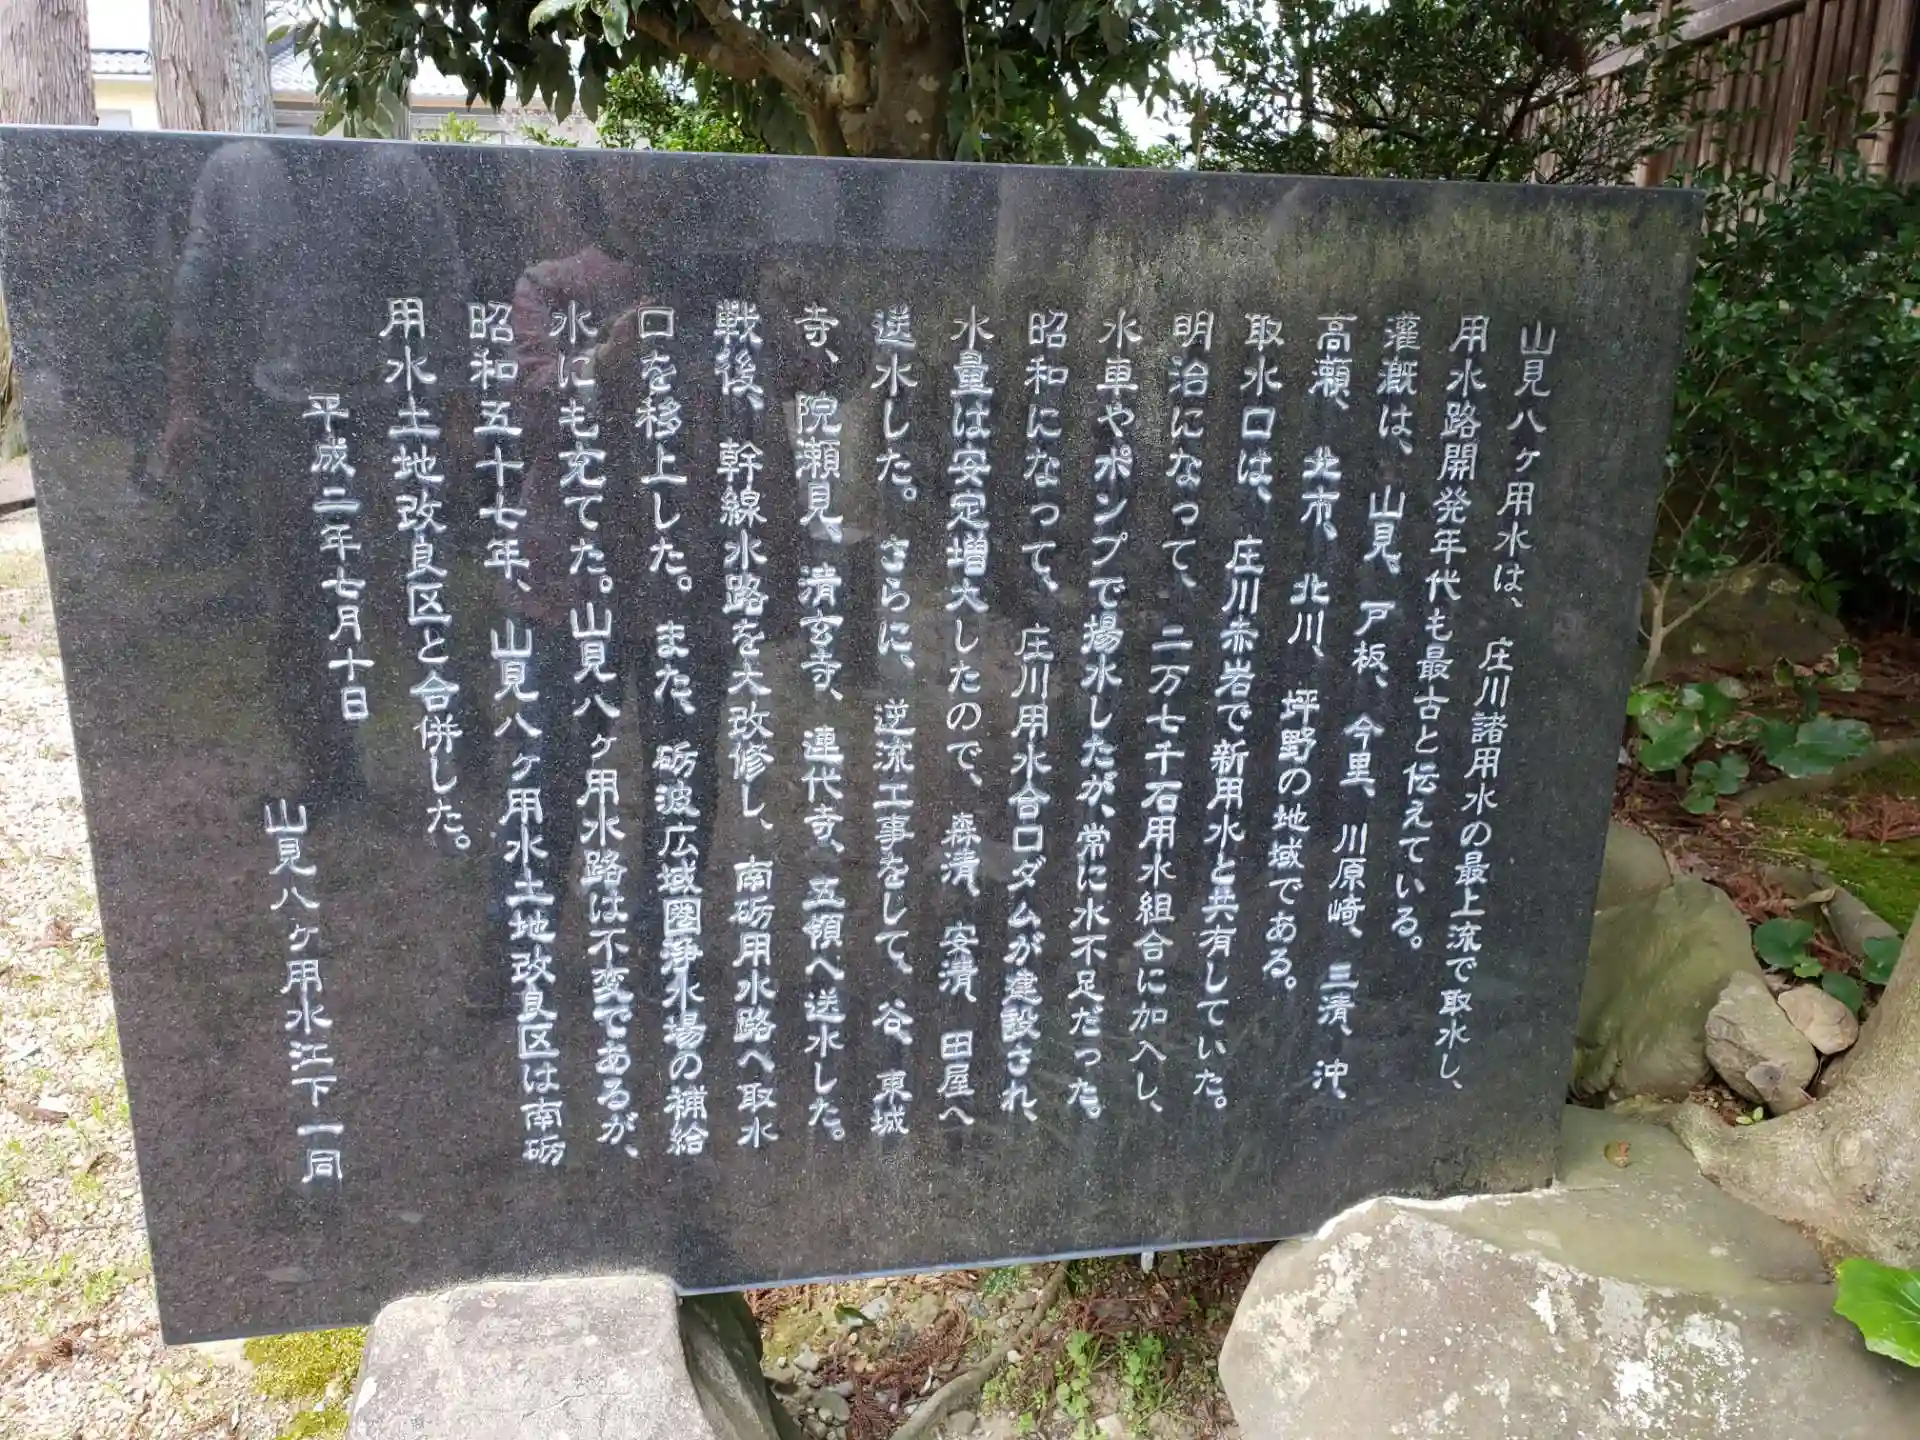 山見八ヶ用水は、庄川諸用水の最上流で取水し、
用水路開発年代も最古と伝えている。
灌漑は、山見、戸板、今里、川原崎、三清、沖、
高瀬、北市、北川、坪野の地域である。
取水口は、庄川赤岩で新用水と共有していた。
明治になって、二万七千石用水組合に加入し、
水車やポンプで揚水したが、常に水不足だった。
昭和になって、庄川用水合口ダムが建設され、
水量は安定増大したので、森清、安清、田屋へ
送水した。さらに、逆流工事をして、谷、東城
寺、院瀬見、清玄寺、連代寺、五領へ送水した。
戦後、幹線水路を大改修し、南砺用水路へ取水
口を移上した。また、砺波広域圏浄水場の補給
水にも充てた。山見八ヶ用水路は不変であるが、
昭和五十七年、山見八ヶ用水土地改良区は南砺
用水土地改良区と合併した。
平成二年七月十日
山見八ヶ用水江下一同